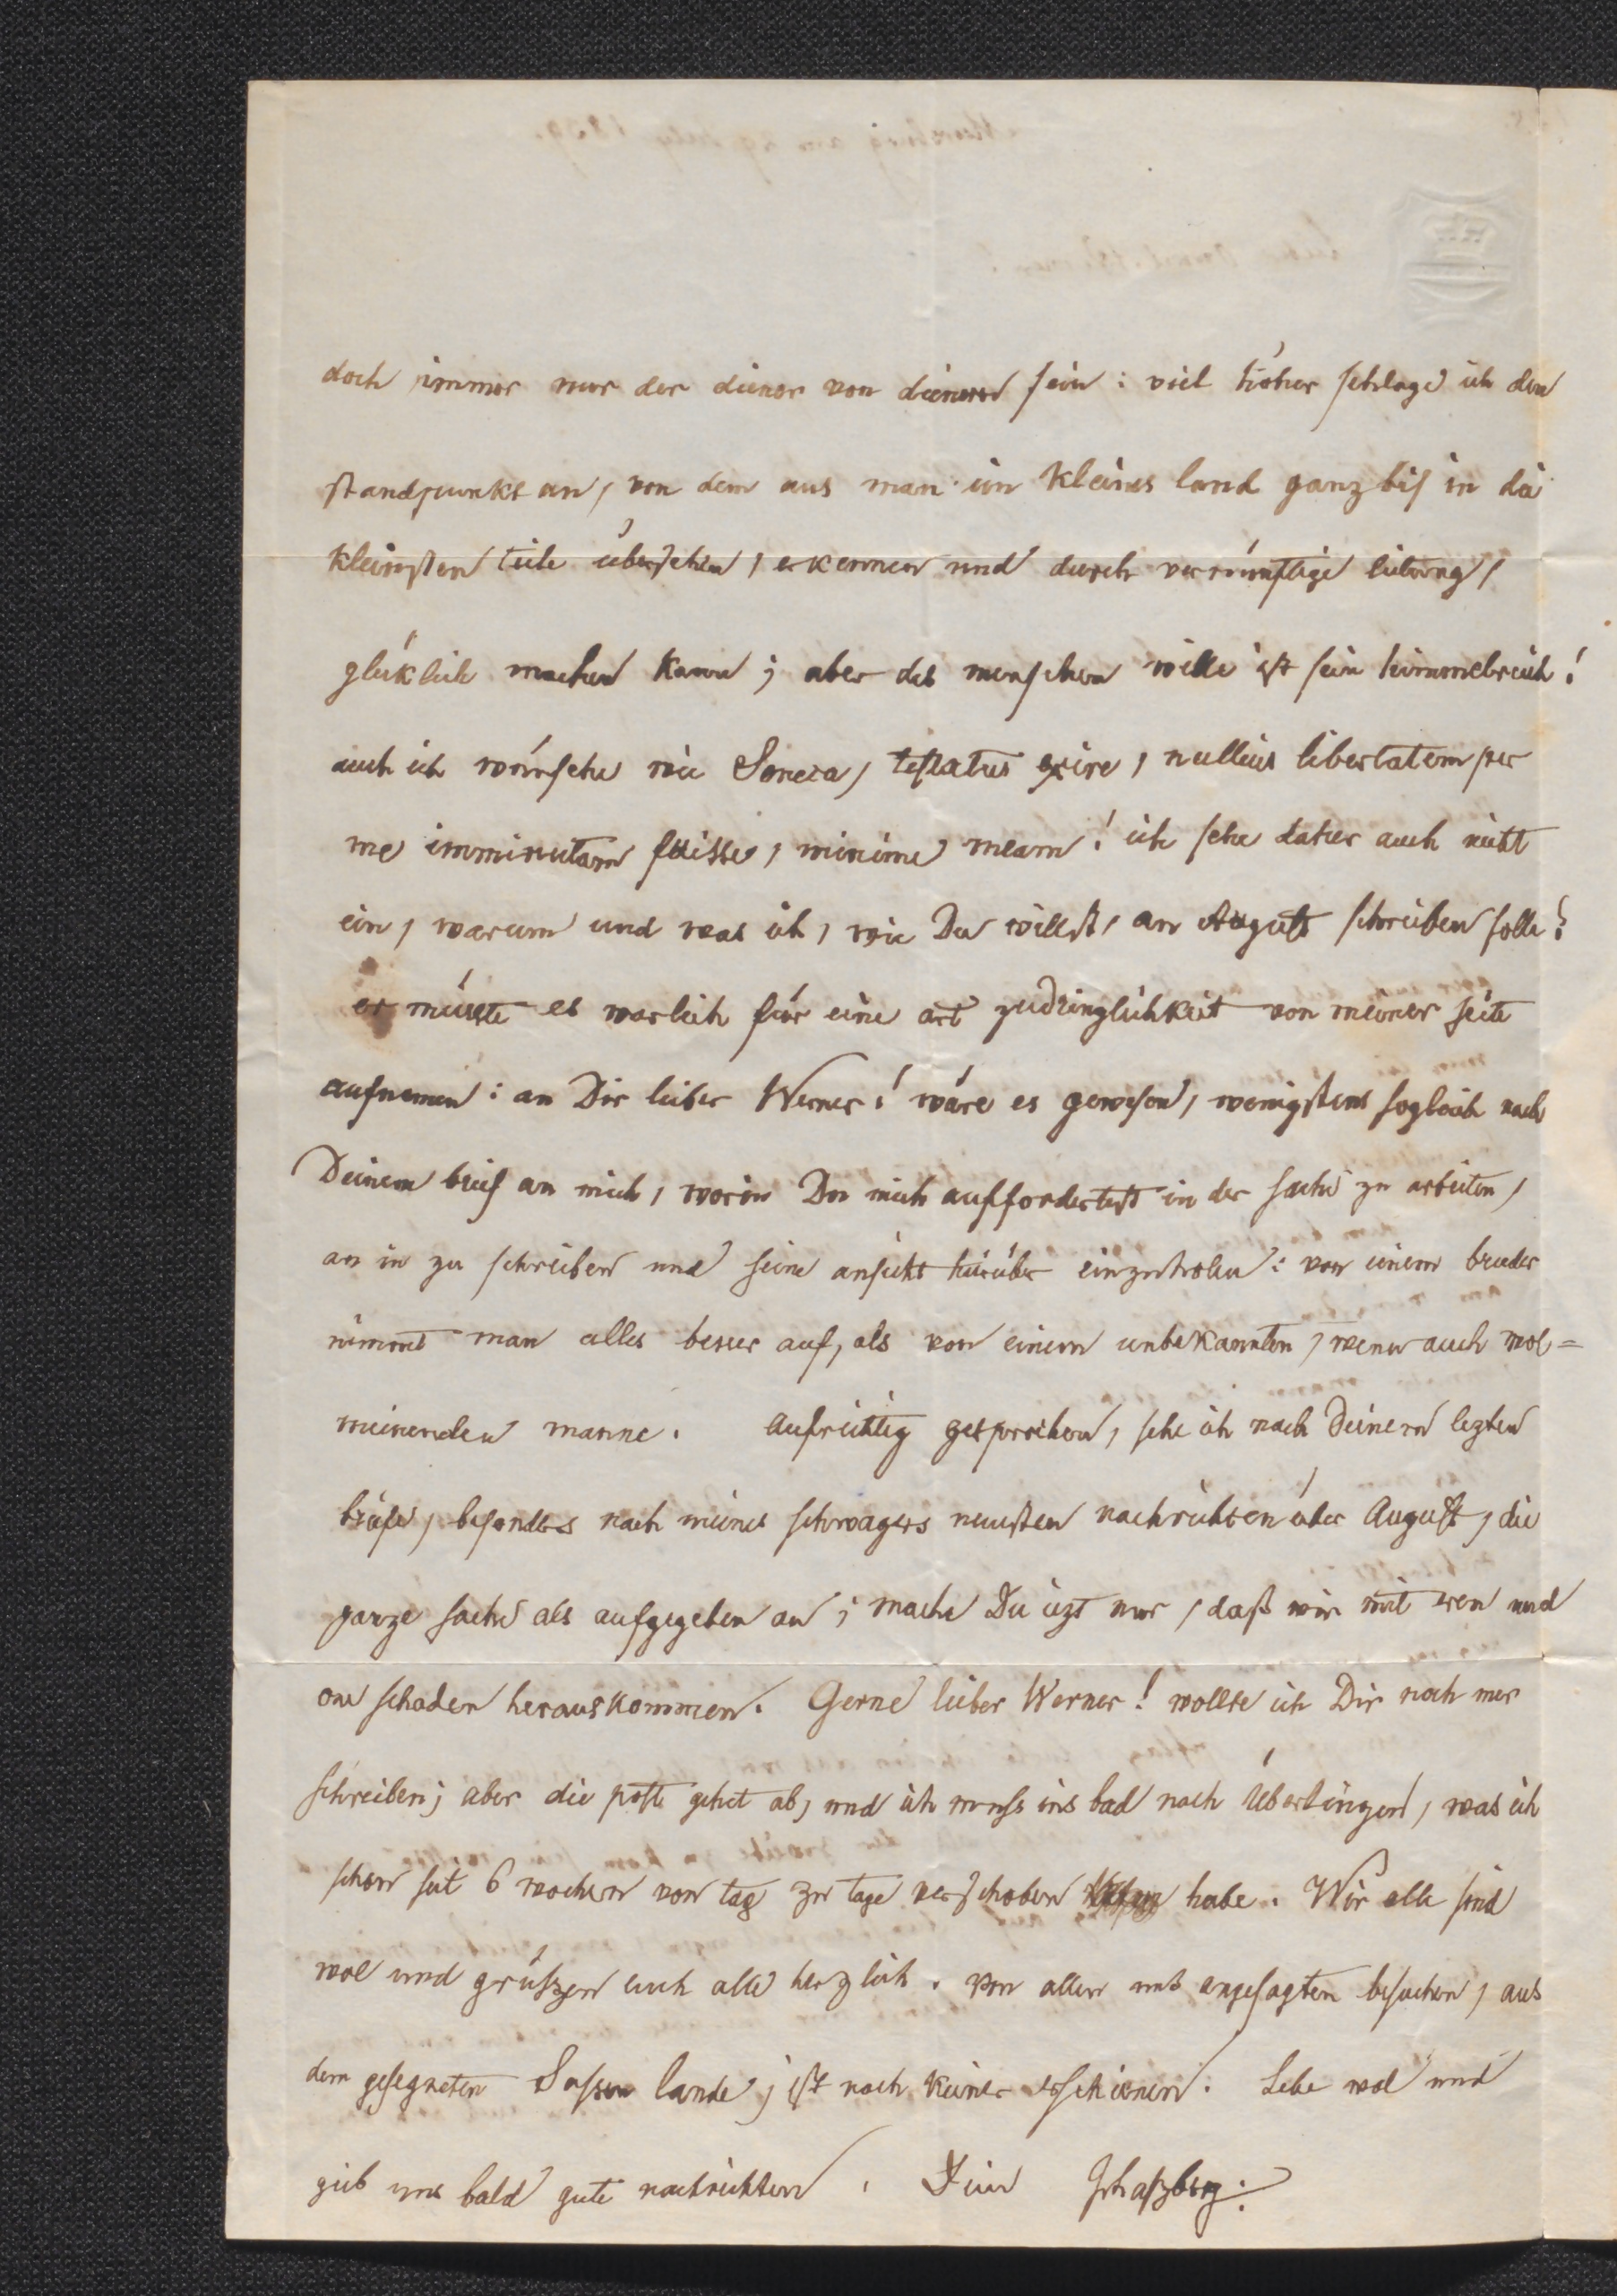 doch immer nur der diener von dienern sein: viel höher schlage ich den
standpunkt an, von dem aus man ein kleines land ganz bis in die
kleinsten teile übersehen, erkennen und durch vernünftige leitung,
glüklich machen kann; aber des menschen wille ist sein himmelreich!
auch ich wünsche wie Seneca, testatus exire, nullius libertatem per
me imminutam fuisse, minime meam! ich sehe daher auch nicht
ein, warum und was ich, wie Du willst, an August schreiben solle?
er müsste es warlich für eine art zudringlichkeit von meiner seite
aufnemen: an Dir lieber Werner! wäre es gewesen, wenigstens sogleich nach
Deinem brief an mich, worin Du mich auffordertest in der sache zu arbeiten,
an in zu schreiben und seine ansicht hierüber einzuholen: von einem bruder
nimmt man alles besser auf, als von einem unbekannten, wenn auch wol=
meinenden manne. Aufrichtig gesprochen, sehe ich nach Deinem lezten
briefe, besonders nach meines schwagers neusten nachrichten über August, die
ganze sache als aufgegeben an; mache Du iezt nur, daß wir mit eren und
one schaden herauskommen. Gerne lieber Werner! wollte ich Dir noch mer
schreiben; aber die post gehet ab, und ich muss ins bad nach Überlingen, was ich
schon seit 6 wochen von tag zu tage verschoben habe. Wir alle sind
wol und grüszen euch alle herzlich. von allen uns angesagten besuchen, aus
dem gesegneten Sassen lande, ist noch keiner erschienen. Lebe wol und
gieb uns bald gute nachrichten. Dein